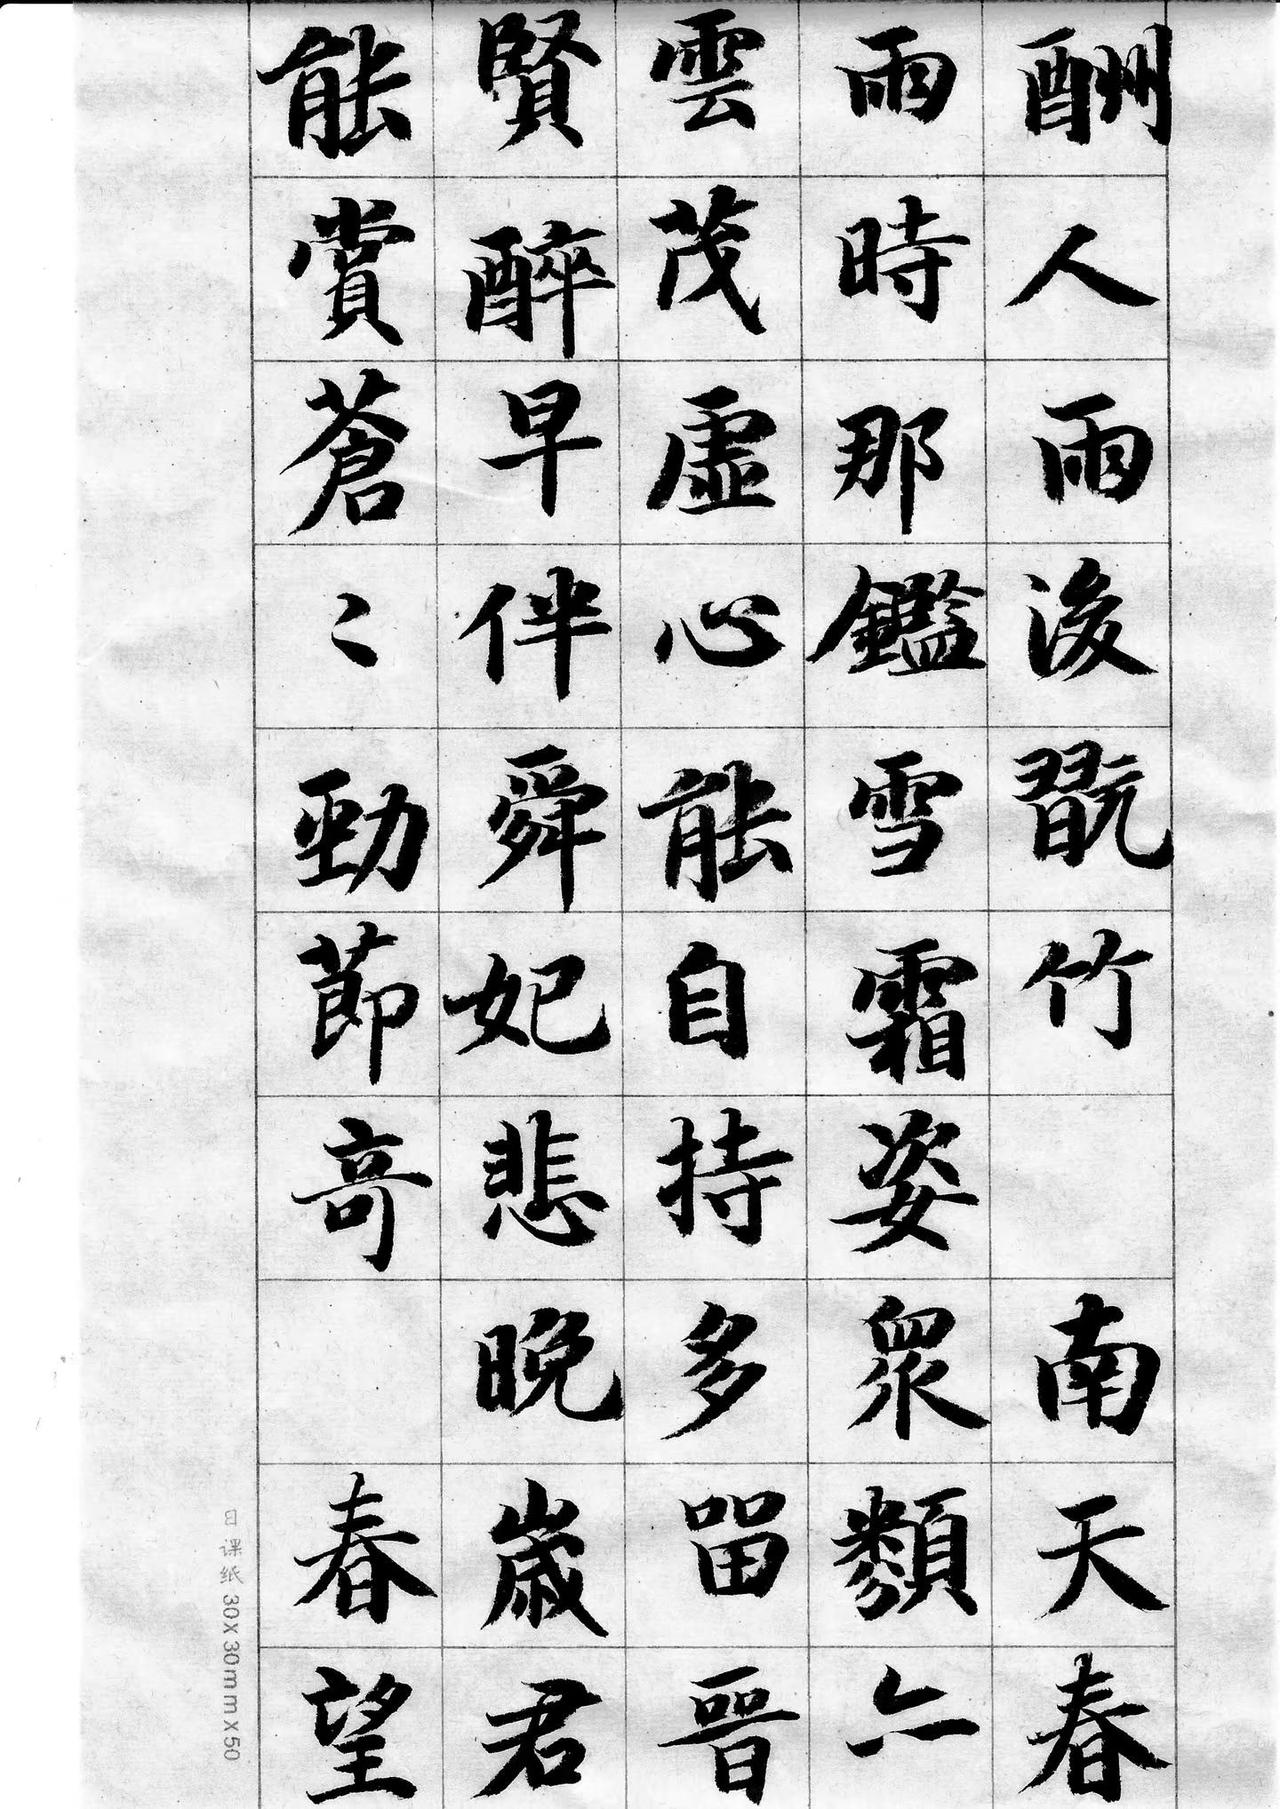 酬人雨後翫竹 南天春
雨時那鑑雪霜姿衆類亦
雲茂虛心能自持多留晉
賢醉早伴舜妃悲晚歲君
能賞蒼〻勁節奇 春望
日课纸 30x30mmx50